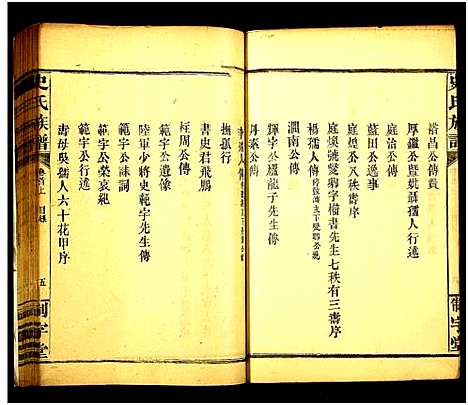 裕昌公傳贊
厚鑑公暨姚孺人行述
庭洽公傳
藍田公逸事
庭煥公八秩壽序
庭煥號變卿字楷書先生七秩有三壽序
楊孺人傳
澗南公傳
輝字公廬龍子先生傳
丹泰公傳
撫孤行
書史君飛鵬
程周公傳
範宇公遺像
陸軍少將史範宇先生傳
範宇公誄詞
範宇公榮哀紀
範宇公行述
壽母吳孺人六十花甲序
史氏族譜
目錄
五
制字堂
史氏族譜
制字堂